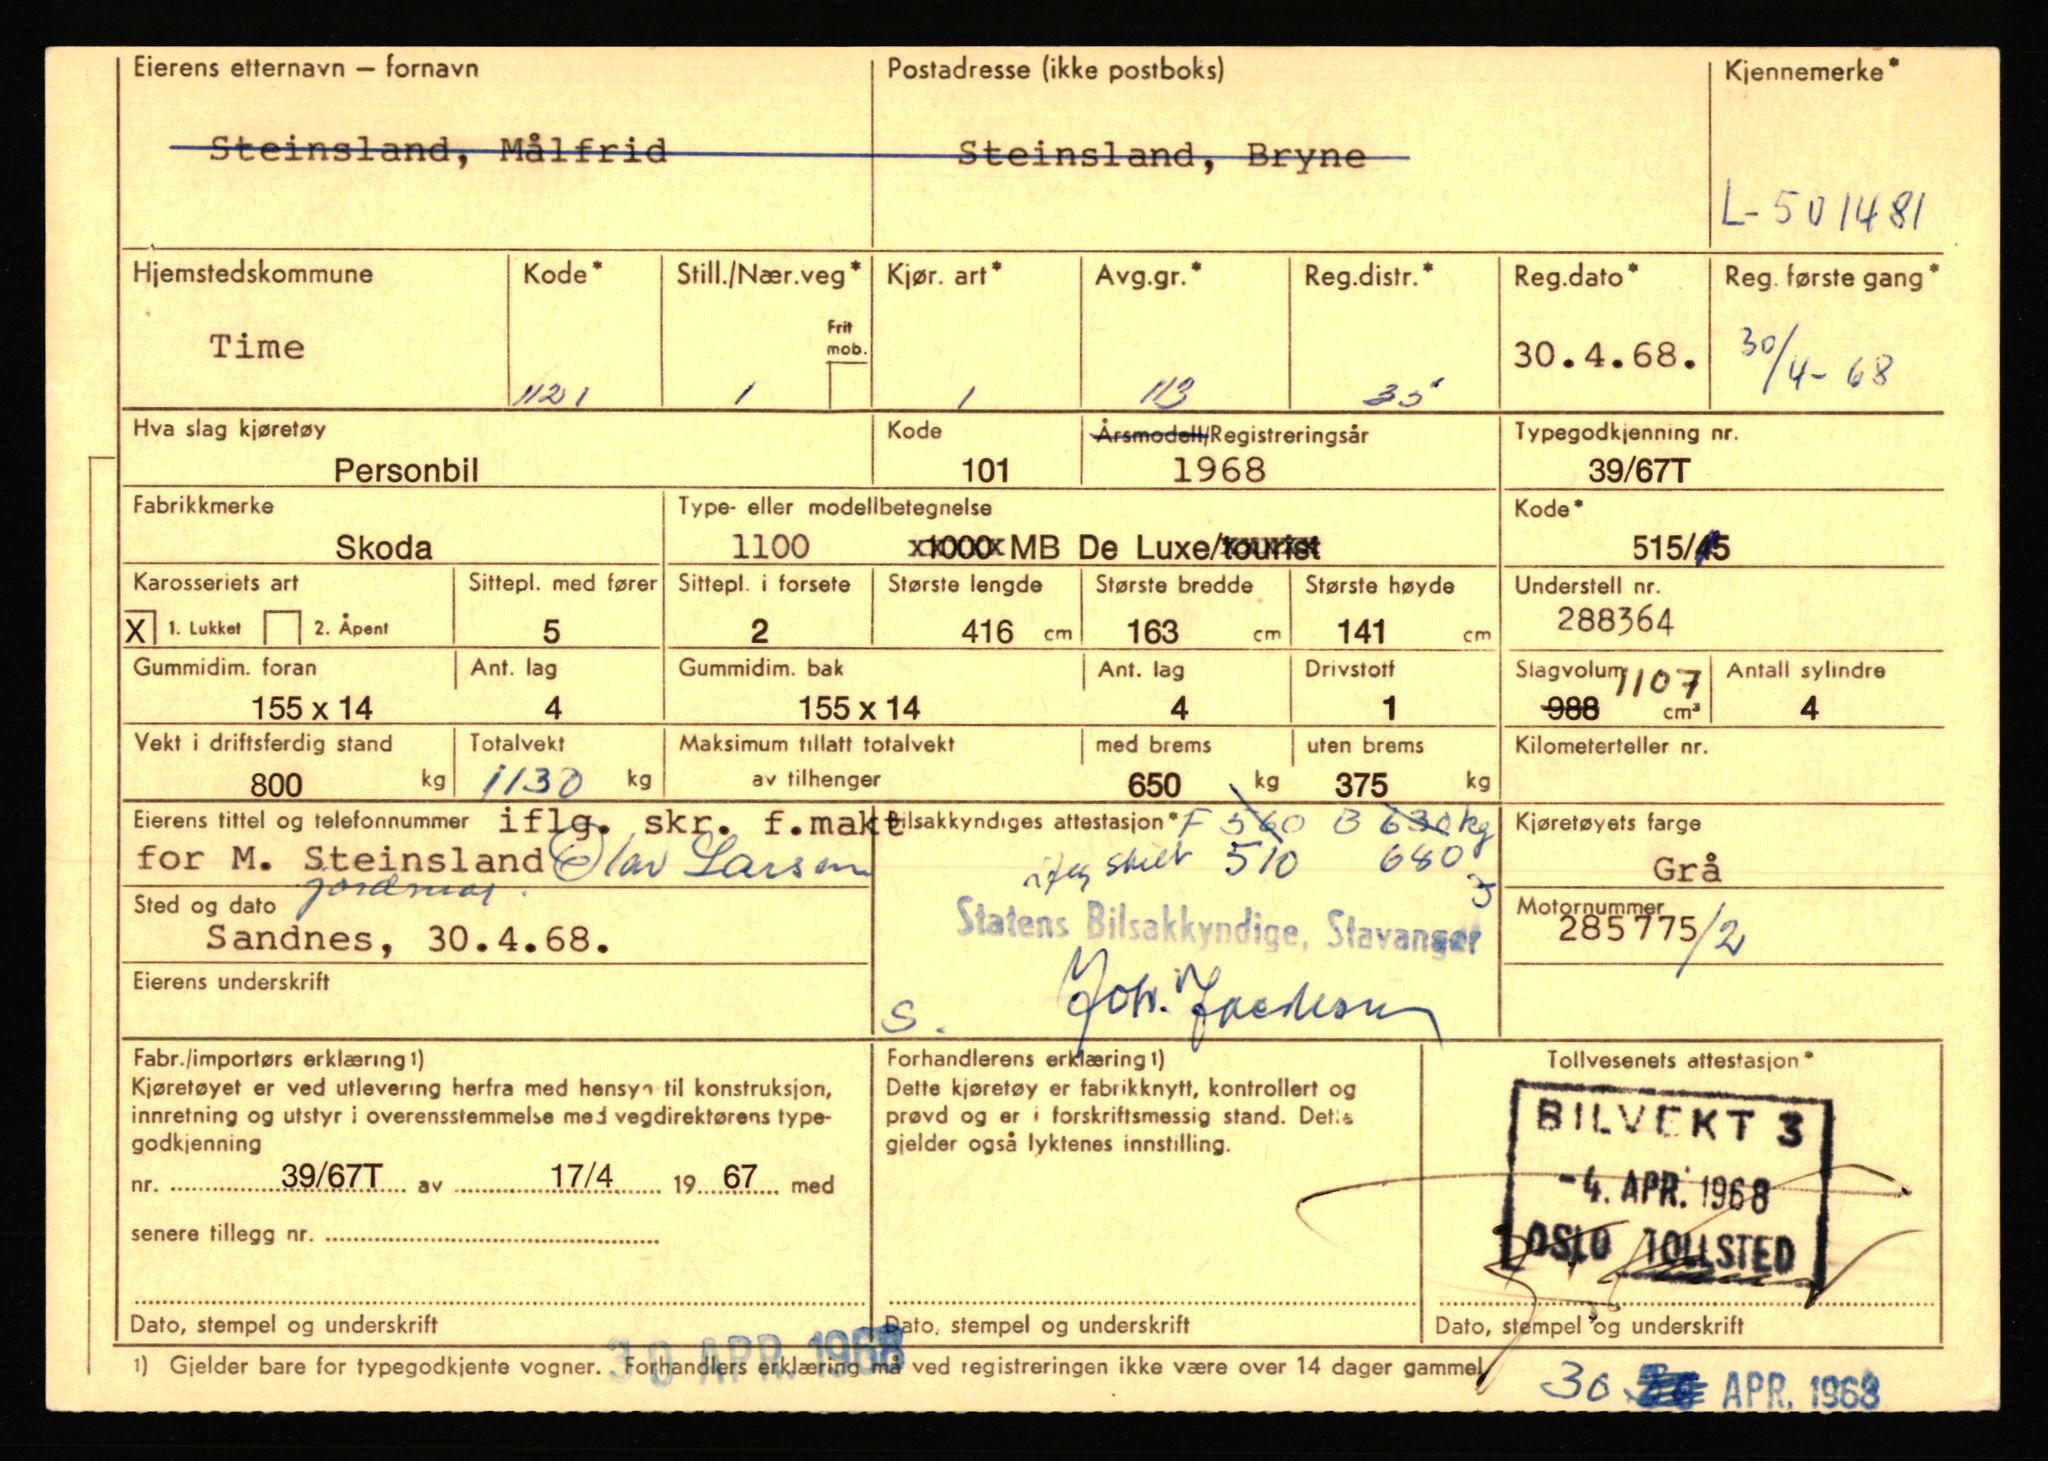 Eierens etternavn – fornavn Postadresse (ikke postboks) Kjennemerke*
Steinsland, Målfrid Steinsland, Bryne
L-501481
Hjemstedskommune Kode* Still./Nær.veg* Kjør. art* Avg.gr.* Reg.distr.* Reg.dato* Reg. første gang*
Frit mob.
Time 1121 1 1 113 35 30.4.68. 30/4-68
Hva slag kjøretøy Kode Årsmodell/Registreringsår Typegodkjenning nr.
Personbil 101 1968 39/67T
Fabrikkmerke Type- eller modellbetegnelse Kode*
Skoda 1100 x1000x MB De Luxe/tourist 515/45
Karosseriets art Sittepl. med fører Sittepl. i forsete Største lengde Største bredde Største høyde Understell nr.
X 1. Lukket 2. Åpent 5 2 416 cm 163 cm 141 cm 288364
Gummidim. foran Ant. lag Gummidim. bak Ant. lag Drivstoff Slagvolum 1107 Antall sylindre
155 x 14 4 155 x 14 4 1 988 cm³ 4
Vekt i driftsferdig stand Totalvekt Maksimum tillatt totalvekt med brems uten brems Kilometerteller nr.
800 kg 1130 kg av tilhenger 650 kg 375 kg
Eierens tittel og telefonnummer iflg. skr. f.makt Bilsakkyndiges attestasjon* F 560 B 630 kg Kjøretøyets farge
for M. Steinsland Olav Larsen ifølg skilt 510 680 Grå
jordmor.
Sted og dato Statens Bilsakkyndige, Stavanger Motornummer
Sandnes, 30.4.68. 285775/2
Eierens underskrift
S.
Fabr./importørs erklæring1) Forhandlerens erklæring1) Tollvesenets attestasjon*
Kjøretøyet er ved utlevering herfra med hensyn til konstruksjon, Dette kjøretøy er fabrikknytt, kontrollert og
innretning og utstyr i overensstemmelse med vegdirektørens type- prøvd og er i forskriftsmessig stand. Dette
godkjenning gjelder også lyktenes innstilling.
BILVEKT 3
nr. 39/67T av 17/4 19 67 med
-4. APR. 1968
senere tillegg nr.
OSLO TOLLSTED
Dato, stempel og underskrift Dato, stempel og underskrift Dato, stempel og underskrift
30 APR. 1968
1) Gjelder bare for typegodkjente vogner. Forhandlers erklæring må ved registreringen ikke være over 14 dager gammel.
30 APR. 1968